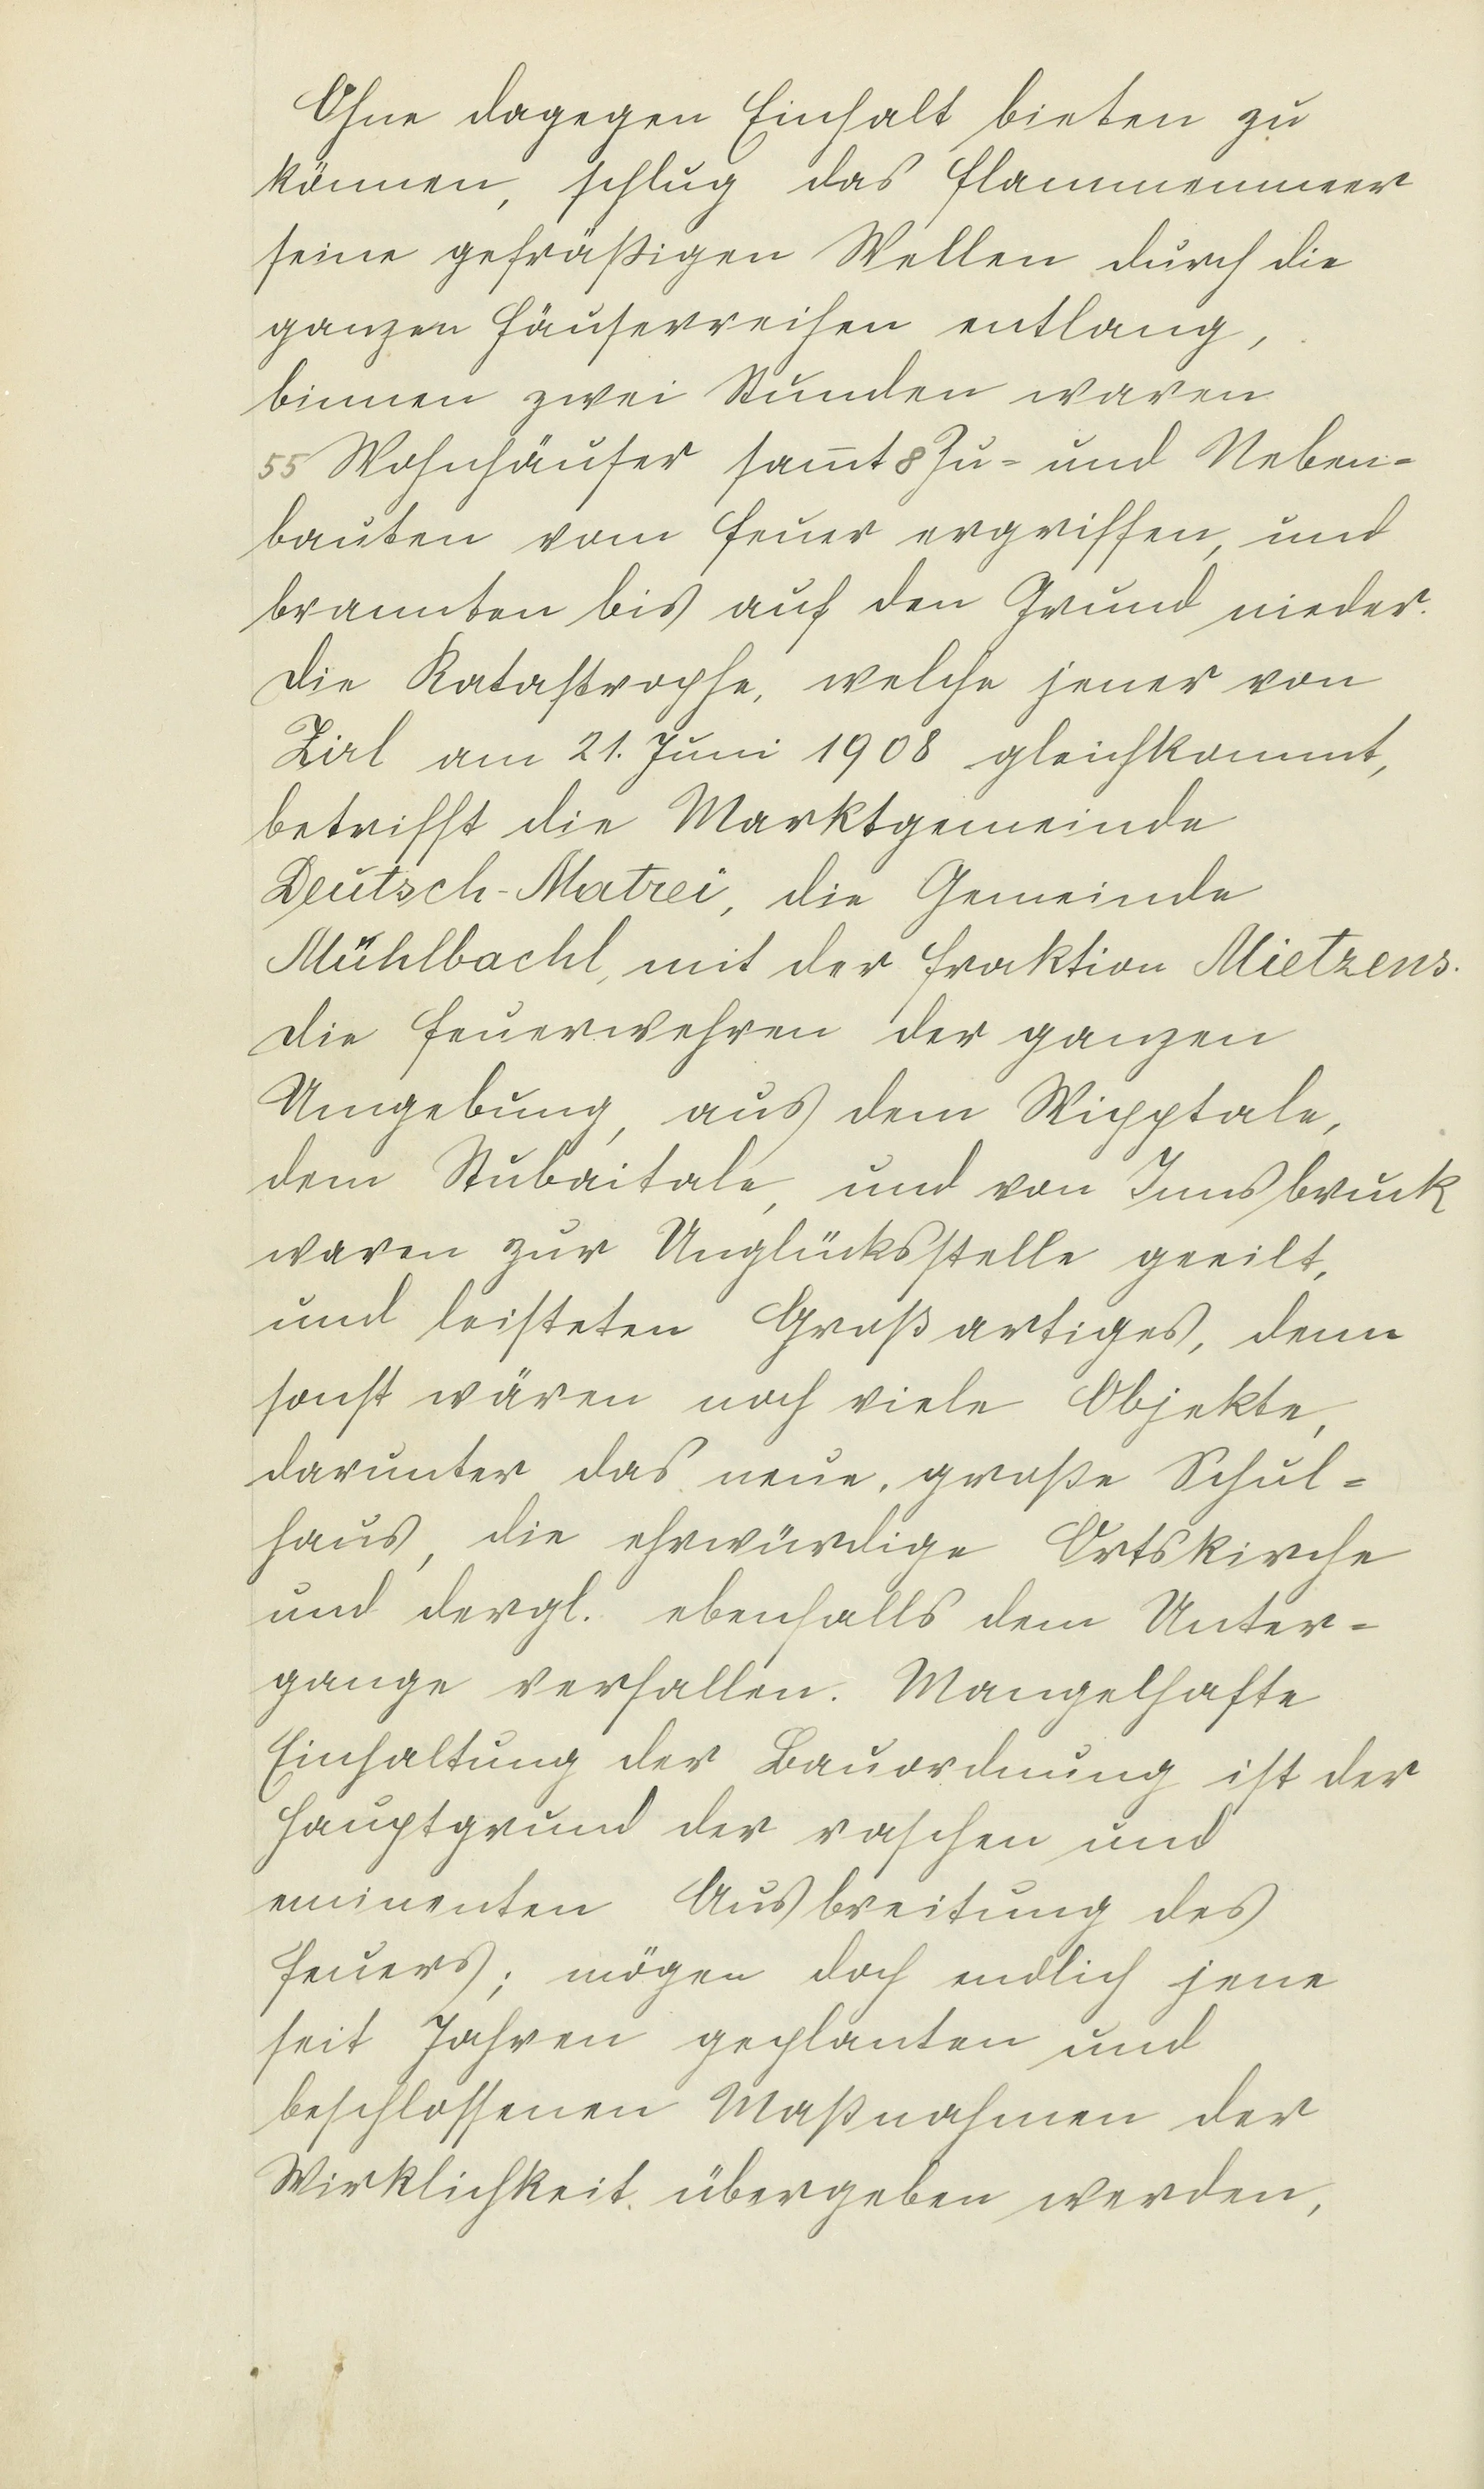 Ohne dagegen Einhalt bieten zu
können, schlug das Flammenmeer
seine gefräßigen Wellen durch die
ganzen Häuserreihen entlang,
binnen zwei Stunden waren
55 Wohnhäuser sam̅t 8 Zu= und Neben=
bauten vom Feuer ergriffen, und
brannten bis auf den Grund nieder.
Die Katastrophe, welche jener von
Zirl am 21. Juni 1908 gleichkommt,
betrifft die Marktgemeinde
Deutsch-Matrei, die Gemeinde
Mühlbachl, mit der Fraktion Mietzens.
Die Feuerwehren der ganzen
Umgebung, aus dem Wipptale,
dem Stubaitale, und von Innsbruck
waren zur Unglücksstelle geeilt,
und leisteten Großartiges, denn
sonst wären noch viele Objekte,
darunter das neue, große Schul=
haus, die ehrwürdige Ortskirche
und dergl. ebenfalls dem Unter=
gange verfallen. Mangelhafte
Einhaltung der Bauordnung ist der
Hauptgrund der raschen und
eminenten Ausbreitung des
Feuers; mögen doch endlich jene
seit Jahren geplanten und
beschlossenen Maßnahmen der
Wirklichkeit übergeben werden,